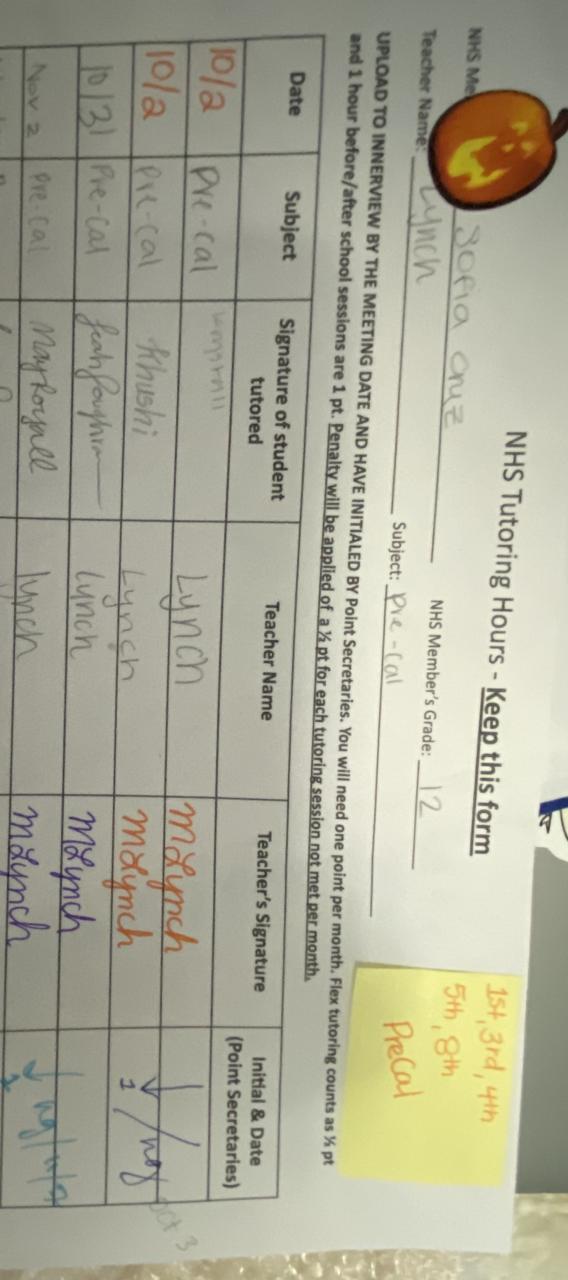 NHS Tutoring Hours - Keep this form
NHS Me Sofia Cruz NHS Member's Grade: 12
Teacher Name: Lynch Subject: Pre-cal
UPLOAD TO INNERVIEW BY THE MEETING DATE AND HAVE INITIALED BY Point Secretaries. You will need one point per month. Flex tutoring counts as ½ pt
and 1 hour before/after school sessions are 1 pt. Penalty will be applied of a ½ pt for each tutoring session not met per month.
1st, 3rd, 4th
5th, 8th
PreCal
Date Subject Signature of student tutored Teacher Name Teacher's Signature Initial & Date (Point Secretaries)
10/2 Pre-cal Lynch MLynch
10/2 Pre-cal Khushi Lynch MLynch 1 oct 3
10/31 Pre-Cal Lynch MLynch
Nov 2 Pre-cal Lynch MLynch